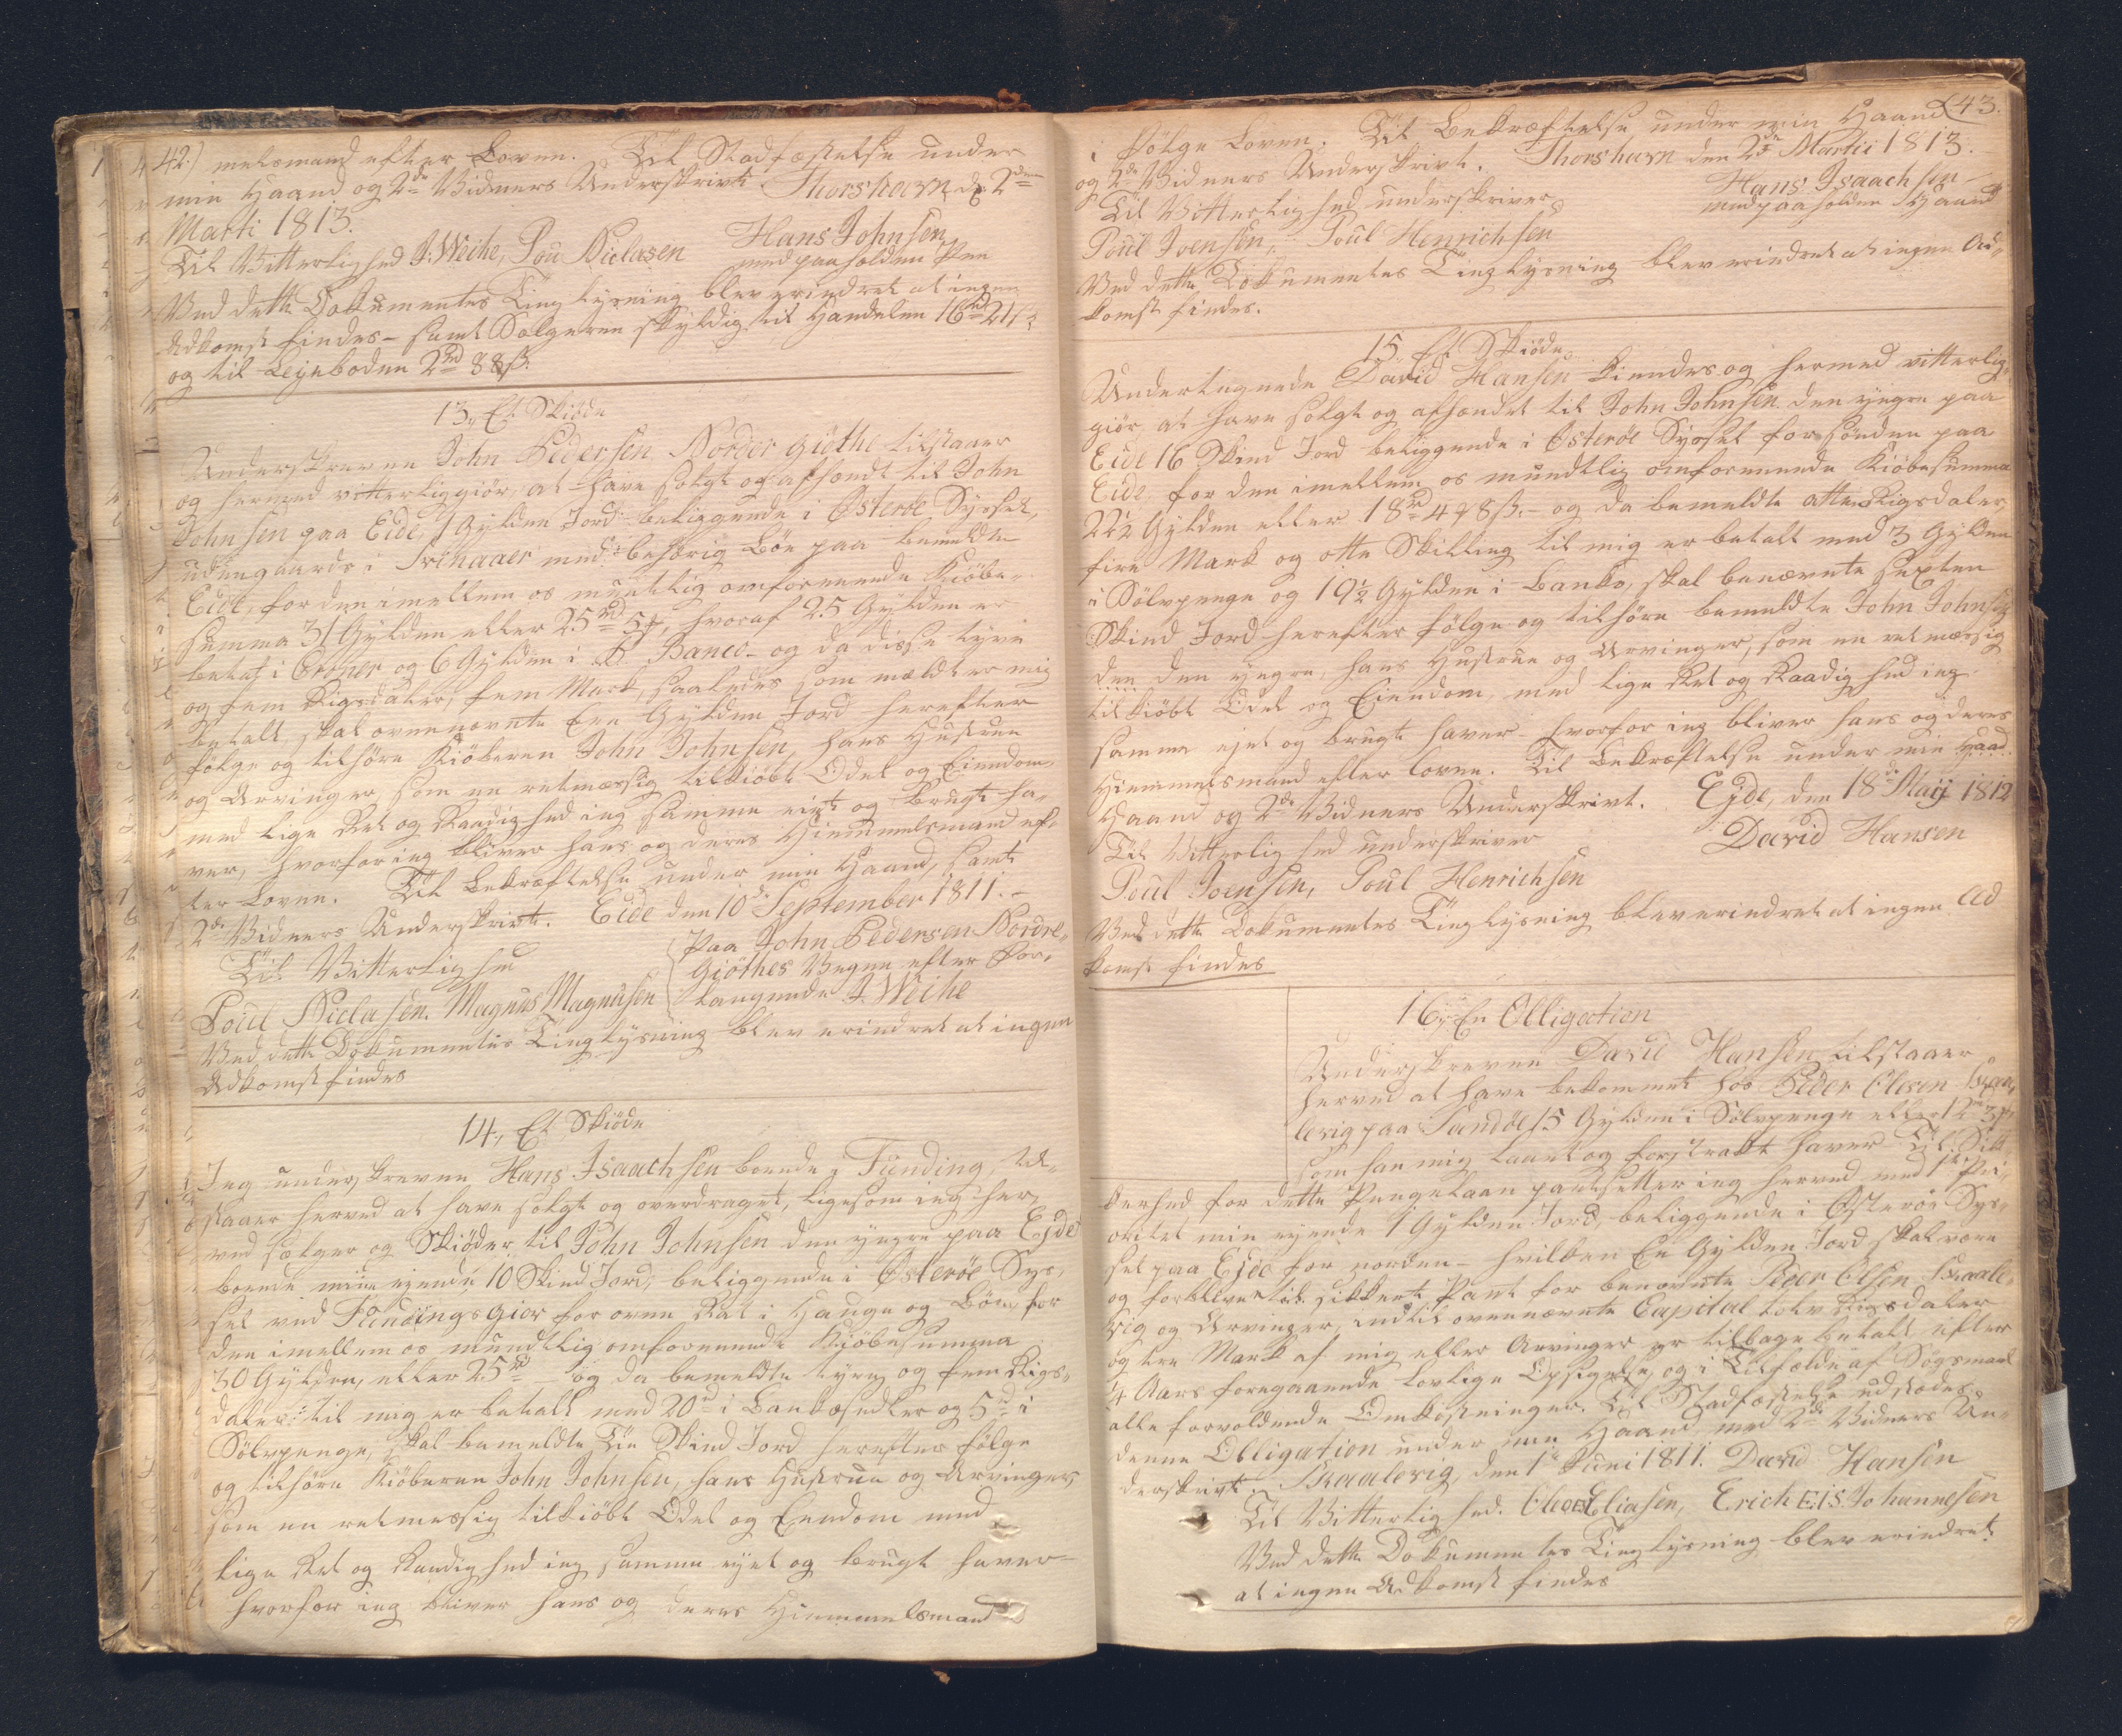 42.) melsmand efter Loven. Til Stadfæstelse under
min Haand og 2de Vidners Underskrivt. Thorshavn d. 2den
Marti 1813.
Hans Johnsen
Til Vitterlighed J. Weihe, Pou Niclasen med paaholden Pen
Ved dette Dokumentes Tinglysning blev erindret at ingen
Adkomst findes - samt Sælgeren skyldig til Handelen 16rd 21s
og til Leyeboden 2rd 88s.
13, Et Skiöde
Underskrevne John Pedersen Norder Giöthe tilstaaer
og hermed vitterliggiör, at have solgt og afhændt til John
Johnsen paa Eide, 1 Gylden Jord beliggende i Österöe Syssel,
udengaards i med behörig Böe paa bemeldte
Eide, for den imellem os mundtlig omforenende Kiöbe-
summa 31 Gylden eller 25rd 5m, hvoraf 25 Gylden er
betalt i og 6 Gylden i Banco - og da disse tyve
og fem Rigsdaler, fem Mark, saaledes som meldt er mig
betalt, skal ovennævnte Een Gylden Jord herefter
fölge og tilhöre Kiöberen John Johnsen, hans Hustrue
og Arvinger, som en retmæssig tilkiöbt Odel og Eiendom,
med lige Ret og Raadighed ieg samme eiet og brugt ha-
ver, hvorfor ieg bliver hans og deres Hiemmelsmand ef-
ter Loven. Til Bekræftelse under min Haand, samt
2de Vidners Underskrivt. Eide den 10de September 1811. -
Til Vitterlighed
Paa John Pedersen Nordre-
Giöthes Vegne efter For-
Poul Niclasen. Magnus Magnusen langende J. Weihe
Ved dette Dokumentes Tinglysning blev erindret at ingen
Adkomst findes
14, Et Skiöde
Jeg underskrevne Hans Isaachsen boende i Funding, til-
staaer herved at have solgt og overdraget, ligesom ieg her-
ved sælger og Skiöder til John Johnsen den yngre paa Ejde
boende mine eyende 10 Skind Jord, beliggende i Österöe Sys-
sel ved Fundingsgior for oven Ret i Hauge og Böe, for
den imellem os mundtlig omforenende Kiöbesumma
30 Gylden, eller 25rd - og da bemeldte tyve og fem Rigs-
daler til mig er betalt med 20rd i Bankosedler og 5rd i
Sölvpenge, skal bemeldte Tie Skind Jord herefter fölge
og tilhöre Kiöberen John Johnsen, hans Hustrue og Arvinger,
som en retmessig tilkiöbt Odel og Eendom med
lige Ret og Raadighed ieg samme eyet og brugt haver -
hvorfor ieg bliver hans og deres Hiemmelsmand
43.
i Fölge Loven. Til Bekræftelse under min Haand
og 2de Vidners Underskrivt. Thorshavn den 2de Martii 1813.
Til Vitterlighed underskriver
Hans Isaachsen
med paaholden Haand
Poul Joensen, Poul Henrichsen
Ved dette Dokumentes Tinglysning blev erindret at ingen Ad-
komst findes.
15, Et Skiöde
Undertegnede David Hansen kiendes og hermed vitterlig-
giör, at have solgt og afhændet til John Johnsen den yngre paa
Eide 16 Skind Jord beliggende i Österöe Syssel for sönden paa
Eide, for den imellem os mundtlig omforenende Kiöbesumma
22½ Gylden eller 18rd 4m 8s. - og da bemeldte atten Rigsdaler,
fire Mark og otte Skilling til mig er betalt med 3 Gylden
i Sölvpenge og 19½ Gylden i Banko, skal benævnte sexten
Skind Jord herefter fölge og tilhöre bemeldte John Johnsen
den den yngre, hans Hustrue og Arvinger, som en retmæssig
tilkiöbt Odel og Eiendom, med lige Ret og Raadighed ieg
samme ejet og brugt haver - hvorfor ieg bliver hans og deres
Hiemmelsmand efter loven. Til Bekræftelse under min Haad
Haand og 2de Vidners Underskrivt. Ejde, den 18de Maij 1812
Til Vitterlighed underskriver
David Hansen
Poul Joensen, Poul Henrichsen
Ved dette Dokumentes Tinglysning blev erindret at ingen Ad
komst findes
16, En Obligation
Underskrevne David Hansen tilstaaer
herved at have bekommet hos Peder Olesen Skaa-
levig paa Sandöe 15 Gylden i Sölvpenge eller 12rd 3m
som han mig laant og forstrakt haver. Til Sik-
kerhed for dette Pengelaan pantsetter ieg herved med 1te Pri-
oritet min eyende 1 Gylden Jord, beliggende i Österöe Sys-
sel paa Ejde for norden - hvilken En Gylden Jord skal være
og forblive et sikkert Pant for benævnte Peder Olsen Skaale-
vig og Arvinger, indtil ovennævnte Capital tolv Rigsdaler
og tre Mark af mig eller Arvinger er tilbage betalt efter
¼ Aars foregaaende lovlige Opsigelse, og i Tilfælde af Sögsmaal
alle forvoldende Omkostninger. Til Stadfæstelse udstædes
denne Obligation under min Haand, med 2de Vidners Un-
derskrivt. Skaalevig, den 1te Juni 1811. David Hansen
Til Vitterlighed. Eliasen, Erich EIS. Johannesen
Ved dette Dokumentes Tinglysning blev erindret
at ingen Adkomst findes